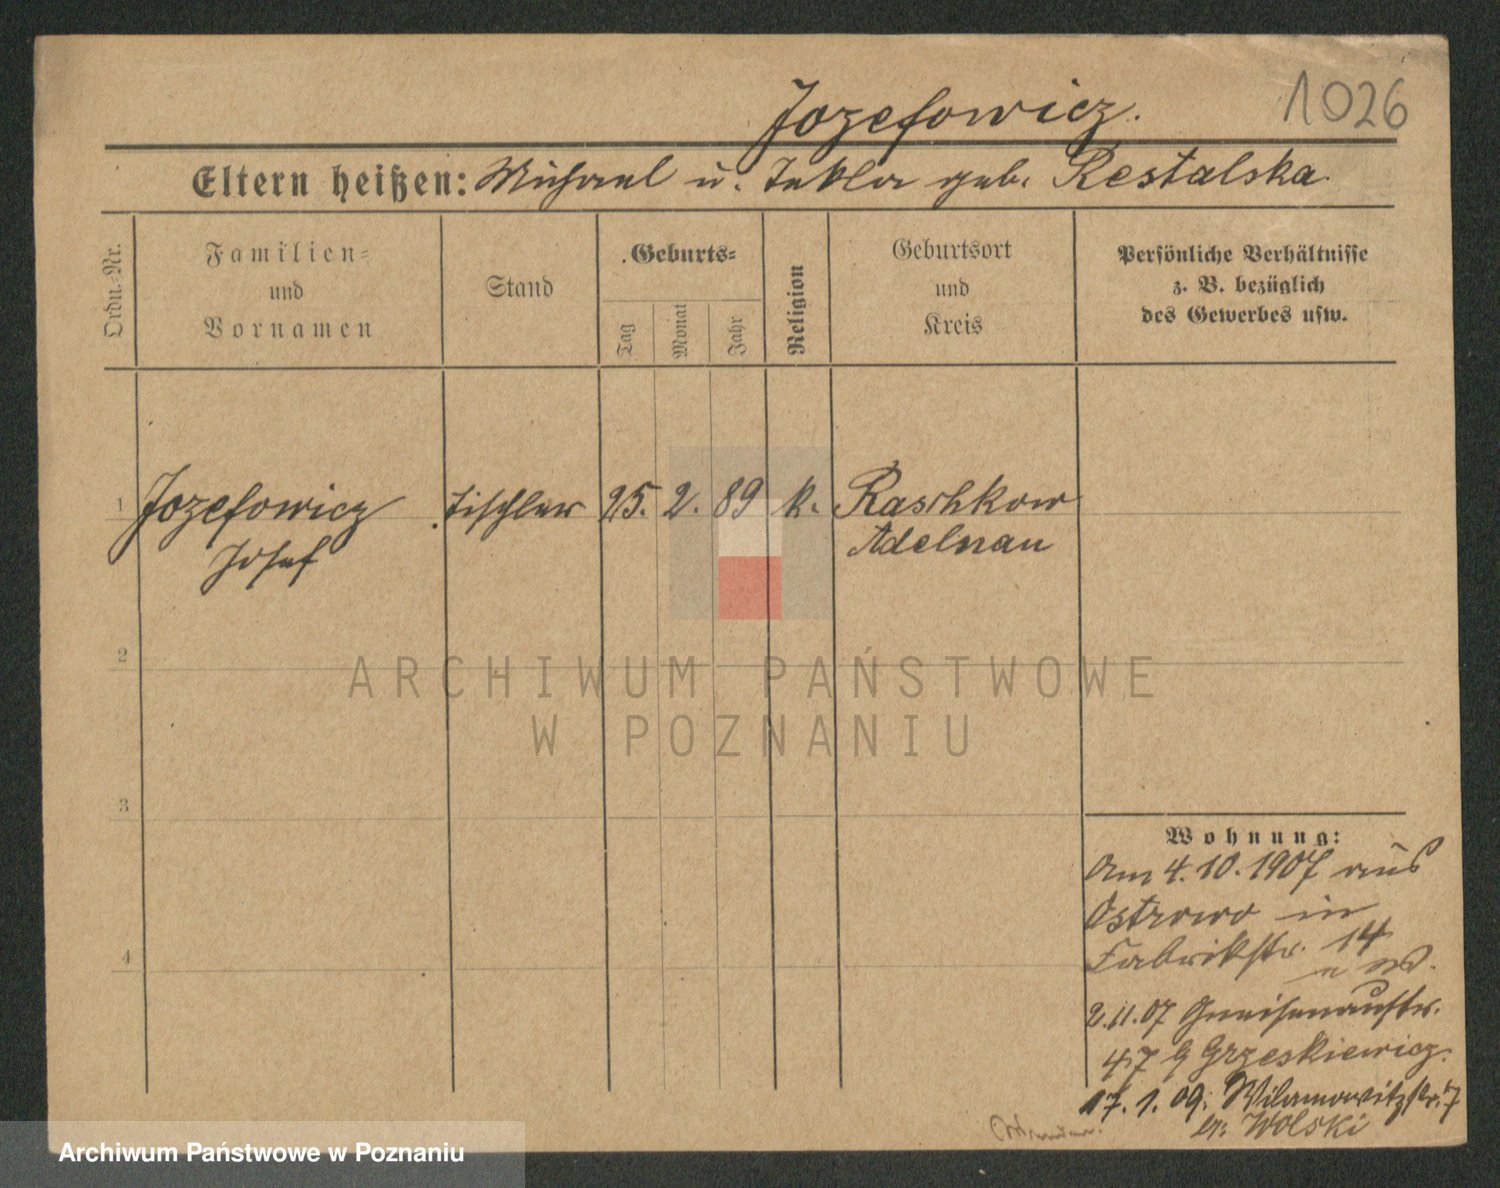 Jozefowicz.
1026
Eltern heißen: Michael u. Tekla geb. Restalska.
Ordn.-Nr.
Familien-
und
Vornamen
Stand
Geburts-
Tag
Monat
Jahr
Religion
Geburtsort
und
Kreis
Persönliche Verhältnisse
z. B. bezüglich
des Gewerbes usw.
1 Jozefowicz Tischler 25. 2. 89 k. Raschkow
Josef Adelnau
2
3
4
Wohnung:
Am 4.10.1907 aus
Ostrowo in
Fabrikstr. 14
2.11.07 Gneisenaustr.
47 Grzeskiewicz.
17.1.09. Wilamowitzstr. 7
Wolski
ARCHIWUM PAŃSTWOWE
W POZNANIU
Archiwum Państwowe w Poznaniu